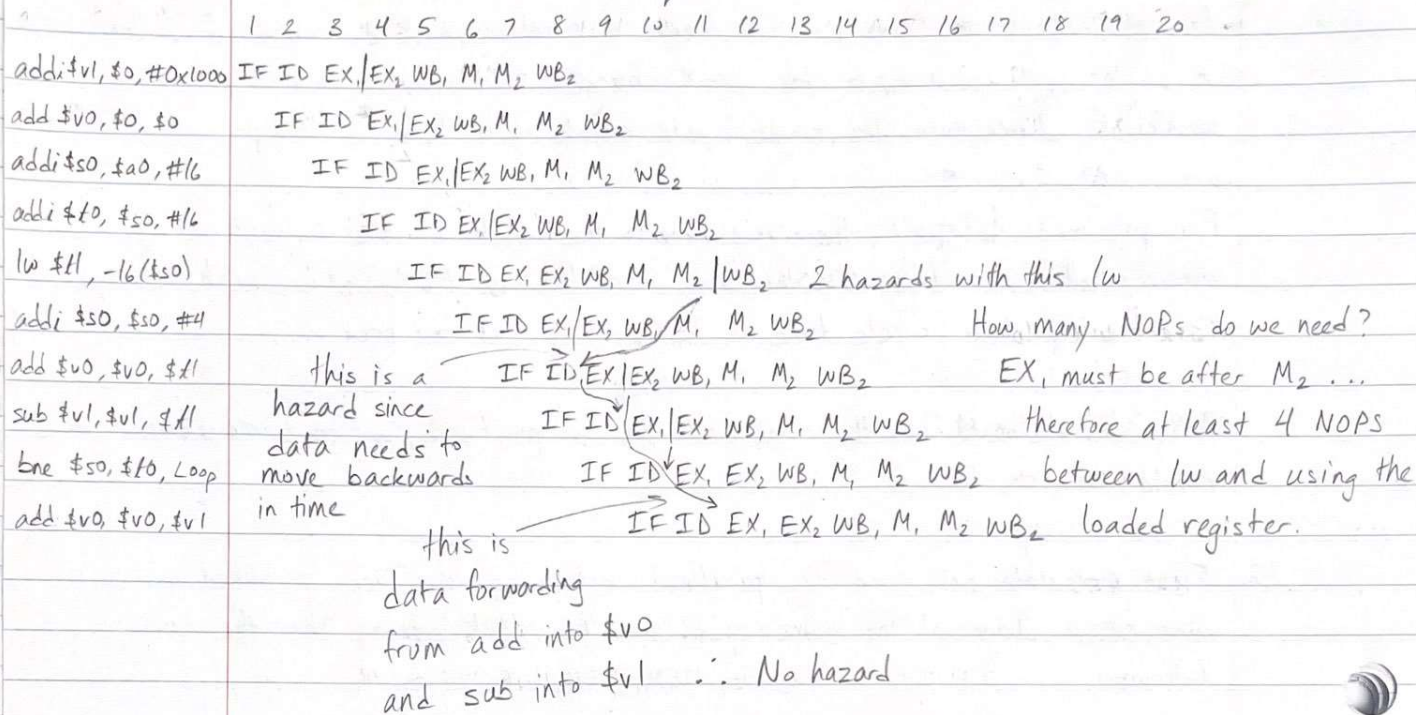 1 2 3 4 5 6 7 8 9 10 11 12 13 14 15 16 17 18 19 20
addi $v1, $0, #0x1000 IF ID EX₁|EX₂ WB₁ M₁ M₂ WB₂
add $v0, $0, $0 IF ID EX₁|EX₂ WB₁ M₁ M₂ WB₂
addi $s0, $a0, #16 IF ID EX₁|EX₂ WB₁ M₁ M₂ WB₂
addi $t0, $s0, #16 IF ID EX₁|EX₂ WB₁ M₁ M₂ WB₂
lw $t1, -16($s0) IF ID EX₁ EX₂ WB₁ M₁ M₂|WB₂ 2 hazards with this lw
addi $s0, $s0, #4 IF ID EX₁|EX₂ WB₁ M₁ M₂ WB₂ How many NOPs do we need?
add $v0, $v0, $t1 this is a IF ID EX|EX₂ WB₁ M₁ M₂ WB₂ EX₁ must be after M₂ ...
sub $v1, $v1, $t1 hazard since IF ID EX₁|EX₂ WB₁ M₁ M₂ WB₂ therefore at least 4 NOPS
data needs to
bne $s0, $t0, Loop move backwards IF ID EX₁ EX₂ WB₁ M₁ M₂ WB₂ between lw and using the
add $v0, $v0, $v1 in time IF ID EX₁ EX₂ WB₁ M₁ M₂ WB₂ loaded register.
this is
data forwarding
from add into $v0
and sub into $v1 ∴ No hazard